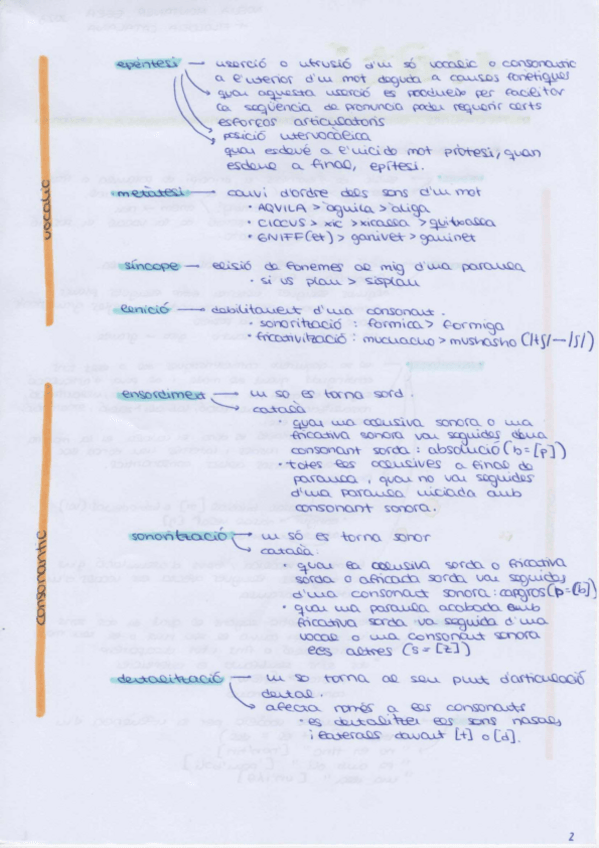 epèntesi → inserció o intrusió d'un só vocàlic o consonàntic
a l'interior d'un mot deguda a causes fonètiques
quan aquesta inserció es produeix per facilitar
la seqüència de pronuncia poden requerir certs
esforços articulatoris
posició intervocàlica
quan esdevé a l'inici de mot pròtesi, quan
esdevé a final, epítesi.
metàtesi → canvi d'ordre dels sons d'un mot
• AQVILA > àguila > àliga
• CICCUS > xic > xicassa > quitxassa
• GNIFF(et) > ganivet > gavinet
síncope → elisió de fonemes al mig d'una paraula
• si us plau > sisplau
lenició → debilitament d'una consonant.
• sonorització : formica > formiga
• fricativització : muchacho > mushasho (/tʃ/ — /ʃ/)
vocàlic
ensordiment → un so es torna sord.
català
• quan una oclusiva sonora o una
fricativa sonora van seguides d'una
consonant sorda : absolució (b=[p])
• totes les oclusives a final de
paraula, quan no van seguides
d'una paraula iniciada amb
consonant sonora.
sonorització → un só es torna sonor
català.
• quan la oclusiva sorda o fricativa
sorda o africada sorda van seguides
d'una consonant sonora : capgròs (p=[b])
• quan una paraula acabada amb
fricativa sorda va seguida d'una
vocal o una consonant sonora
els altres (s=[z])
dentalització → un so torna al seu punt d'articulació
dental.
afecta només a les consonants
• es dentalitzen els sons nasals
i laterals davant [t] o [d].
consonàntic
2